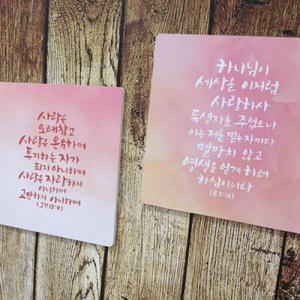 사랑은
오래참고
사랑은 온유하며
투기하는 자가
되지 아니하며
사랑은 자랑하지
아니하며
교만하지 아니하며
(고전13:4)
하나님이
세상을 이처럼
사랑하사
독생자를 주셨으니
이는 저를 믿는자마다
멸망치 않고
영생을 얻게 하려
하심이니라
(요3:16)